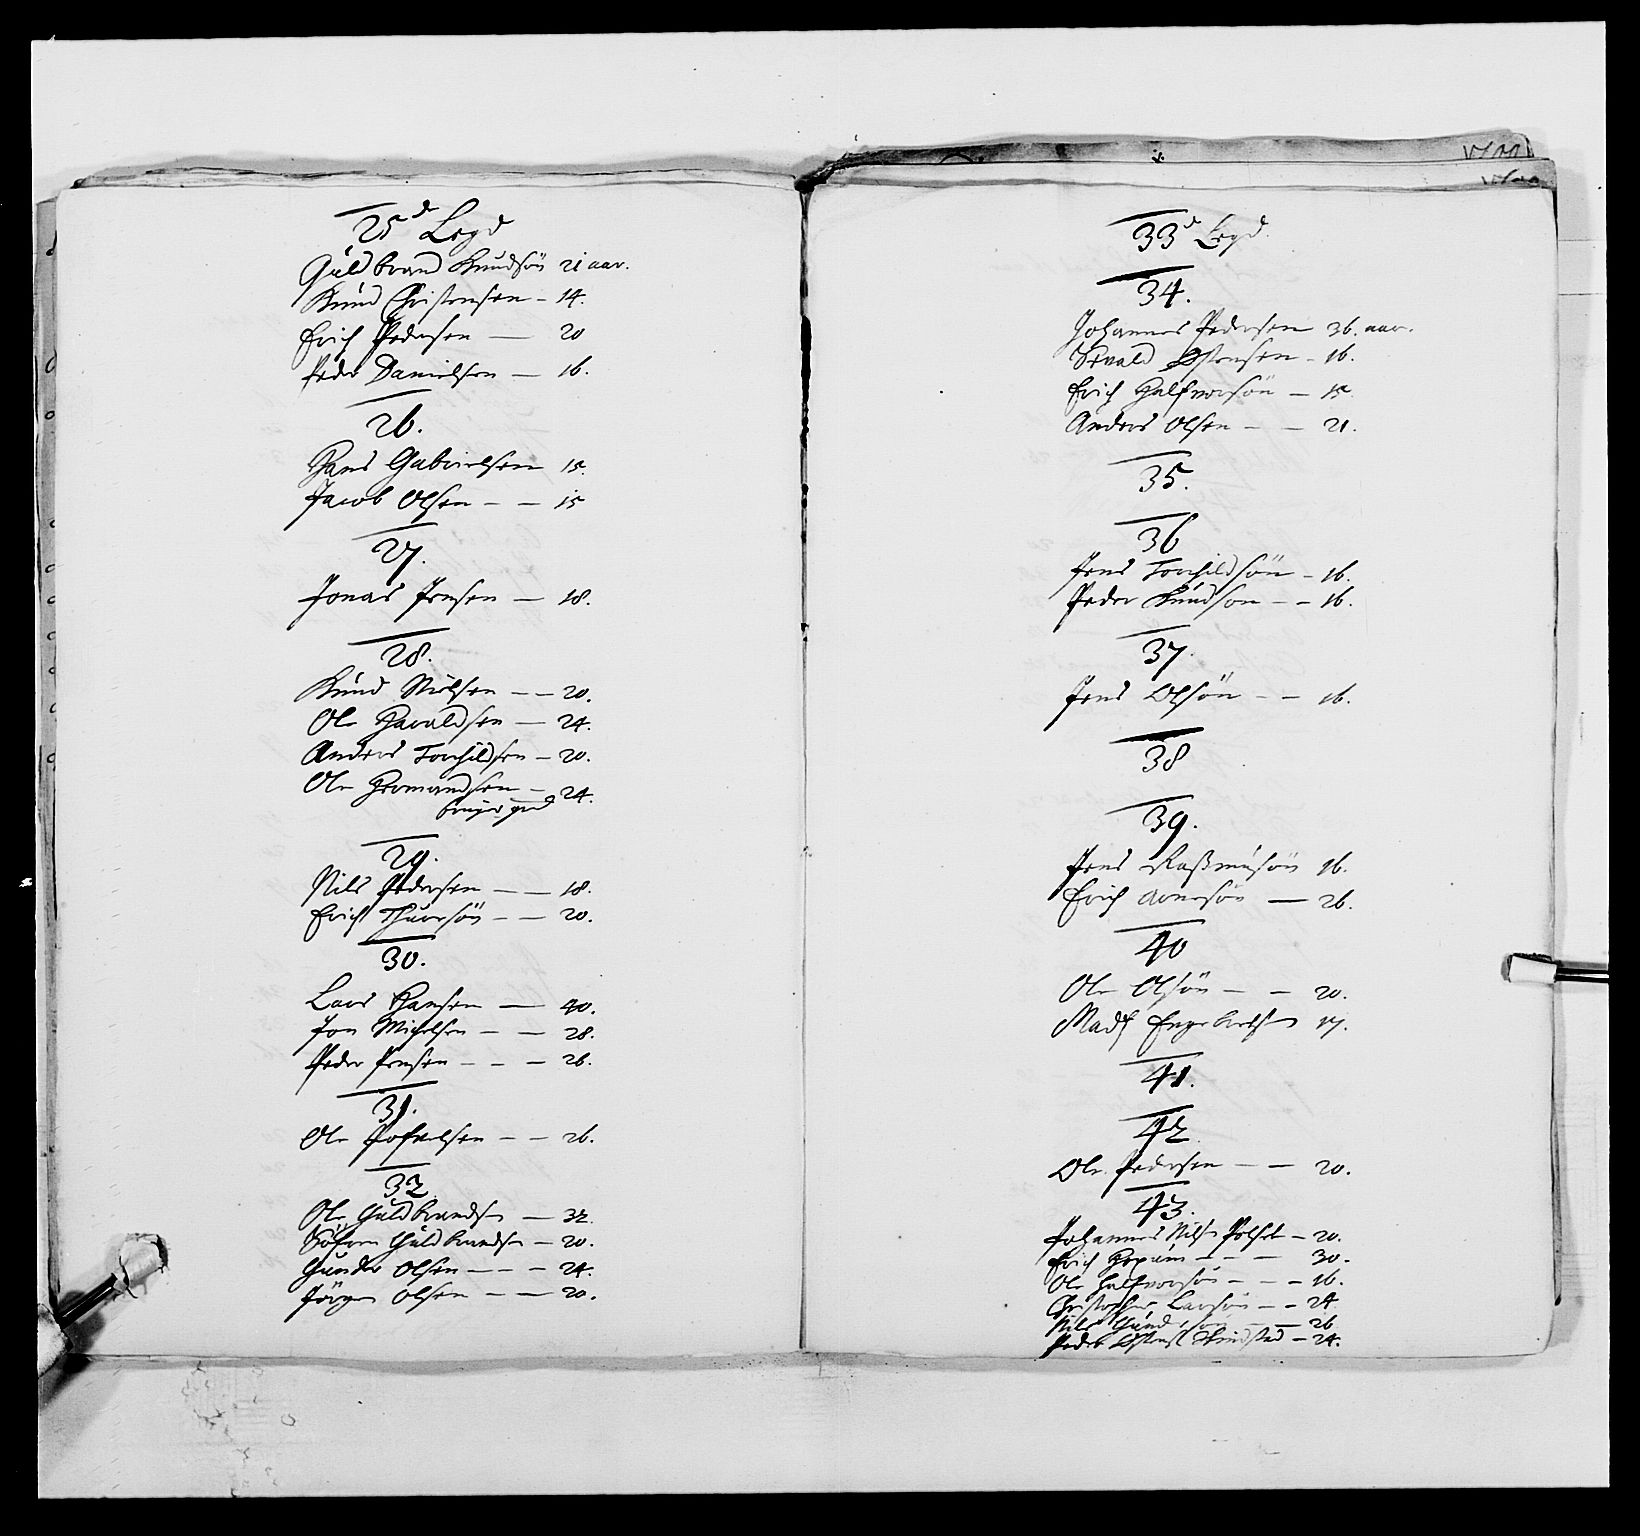 25d Legd
Guldbrand Knudsön 21 aar.
Knud Christensen - 14.
Erich Pedersen — 20
Peder Danielsen — 16.
26.
Hans Gabrielsen 15.
Jacob Olsen - — 15
27.
Jonas Jensen — 18.
28.
Knud Nielsen - — 20.
Ole Haraldsen — 24.
Anders Torchildsen — 20.
Ole Hermandsen - 24.
29.
Nils Pedersen — — 18.
Erich Thuersön - — 20.
30.
Lars Hansen — 40.
Jon Michelsen - — 28.
Peder Jensen - - — 26.
31.
Ole Pofvelsen - — 26.
32
Ole Guldbrands — 32.
Söfren Guldbrands — 20.
Gunder Olsen - - - 24.
Jörgen Olsen - — 20.
33d Legd.
34.
Johannes Pedersen 36. aar.
Sevald Ostensen - 16.
Erich Halfvorsön — 15.
Anders Olsen - — 21.
35.
36
Jens Torchildsön - 16.
Peder Knudson - - 16.
37.
Jens Olsön - — 16.
38
39.
Jens Raßmusön 16.
Erich Arnesön — 26.
40
Ole Olsön - — 20.
Madß Engebrets 17.
41.
42
Ole Pedersen - — 20.
43.
Johannes Nils - 20.
Erich - - — 30.
Ole Halfvorsön - - - 16.
Christopher Larsön - - 24
Nils Gunderson - — 26
Peder - 24.